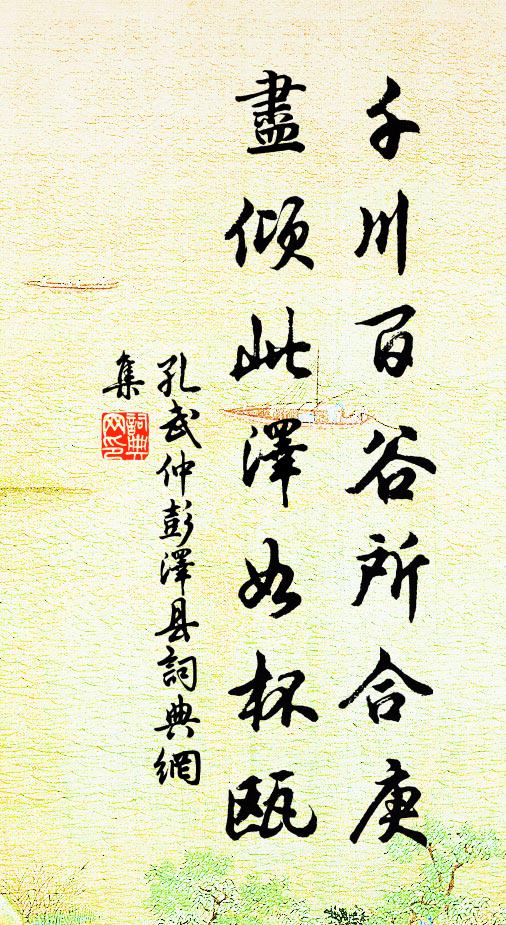 千川百谷所合庚
盡傾此澤如杯甌
孔武仲彭澤县詞典網
集
詞典網印